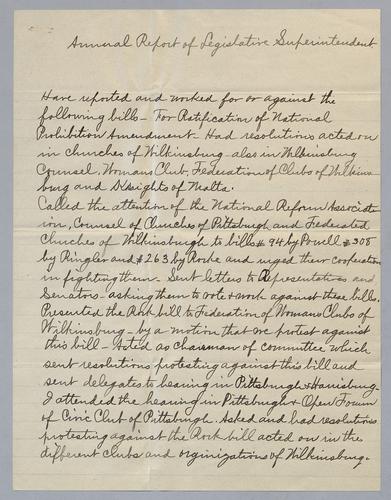 Annual Report of Legislative Superintendent
Have reported and worked for or against the
following bills - For Ratification of National
Prohibition Amendment - Had resolutions acted on
in churches of Wilkinsburg - also in Wilkinsburg
Counsel, Womans Club, Federation of Clubs of Wilkins-
burg and of Malta.
Called the attention of the National Reform Associat-
ion, Counsel of Churches of Pittsburgh and Federated
Churches of Wilkinsburgh to bills # 94 by Powell # 308
by Ringler and # 263 by Rorke and urged their cooperation
in fighting them - Sent letters to Representatives and
Senators - asking them to vote & work against these bills.
Presented the Rork bill to Federation of Womans Clubs of
Wilkinsburg - by a motion that we protest against
this bill - Acted as chairman of committee which
sent resolutions protesting against this bill and
sent delegates to hearing in Pittsburgh & Harrisburg -
I attended the hearing in Pittsburgh & Open Forum
of Civic Club of Pittsburgh. Asked and had resolutions
protesting against the Rork bill acted on in the
different clubs and orginizations of Wilkinsburg.